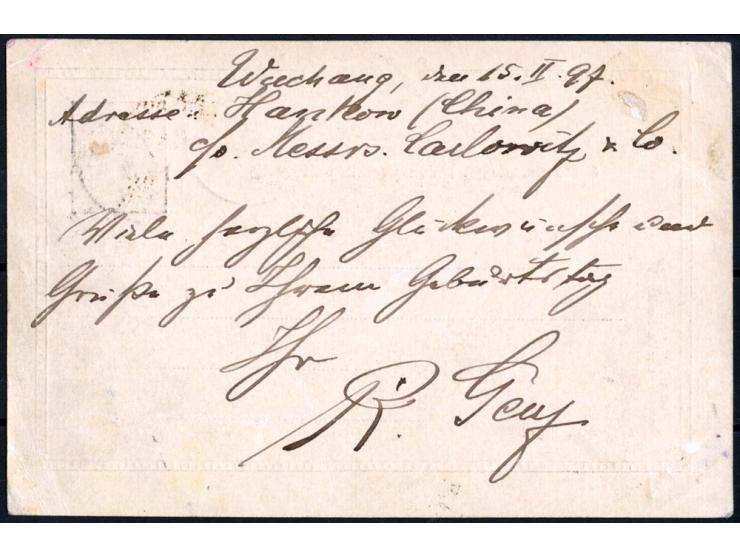 Wuchang, den 15. II. 97.
Adresse: Hankow (China)
c/o. Messrs. Carlowitz & Co.
Viele herzliche Glückwünsche und
Grüße zu Ihrem Geburtstag
Ihr
R.